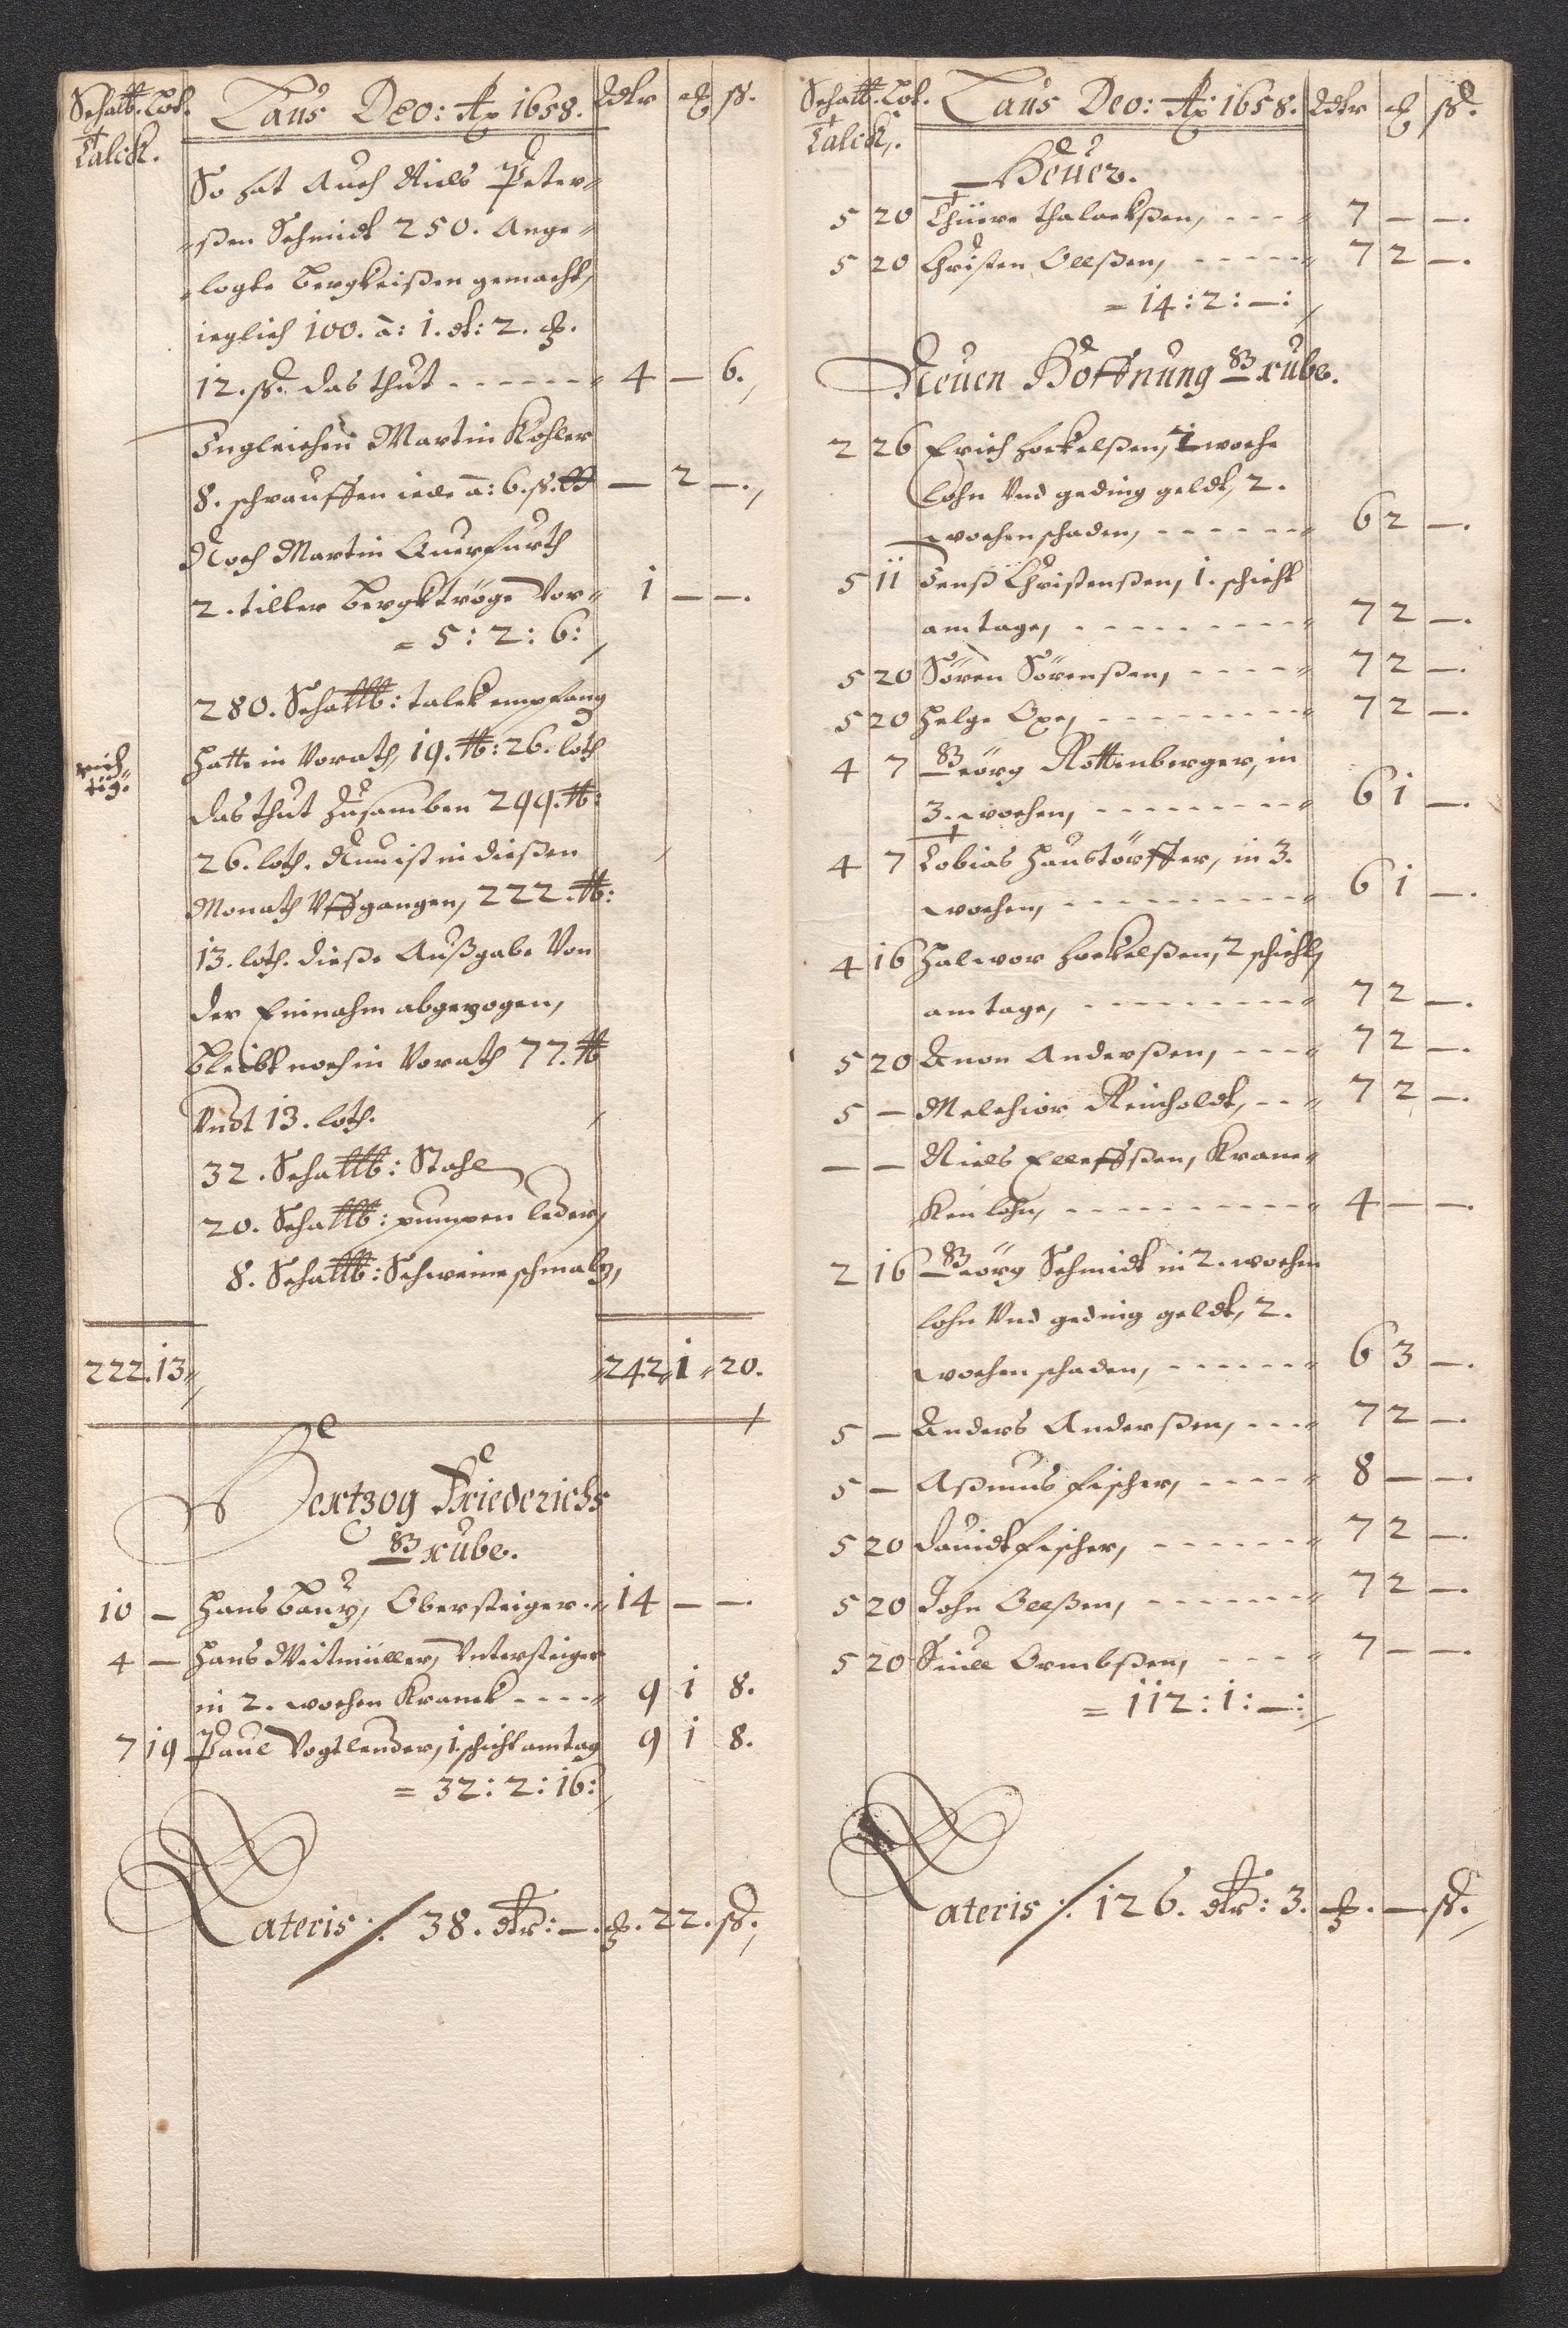 Schal℔. Lot. Laus Deo: Aō 1658. Rdtr ℳ ß.
Talick.
So hat Auch Niels Peter-
-ßen Schmidt 250. Ange-
-logte bergkeißen gemacht,
ieglich 100. ā: 1. dt: 2. ℳ.
12. ß. das thut - - - - - - 4 — 6.
Ingleichen Martin Kohler
8. schrauffen iede ā: 6. ß. — 2 —.
Noch Martin Querfurth
2. tilker bergktröge Vor- 1 — —.
= 5: 2: 6:
280. Schal℔: talck empfang
hatte in Vorath, 19. ℔: 26. loth
rich-
tig.
das thut Zusamben 299. ℔:
26. loth. Nun ist in dießen
Monath Vffgangen, 222. ℔:
13. loth. dieße Außgabe Von
der Einnahm abgezogen,
bleibt noch in Vorath 77. ℔
Vndt 13. loth.
32. Schal℔: Stahl
20. Schal℔: pumpen leder,
8. Schal℔: Schweine schmalz,
222. 13 242 1 20.
Hertzog Friederichs
Grube.
10 — Hans bauz, Obersteiger. 14 — —.
4 — Hans Weitmüller, Vntersteiger
in 2. wochen Kranck - - - - 9 1 8.
7 19 Paul Vogtlender, 1. schicht am tag 9 1 8.
= 32: 2: 16:
Lateris ⁒ 38. dtr: —. ℳ. 22. ß.
Schal℔. Lot. Laus Deo: Aō 1658. Rdtr ℳ ß.
Talick.
Heuer.
5 20 Thüere thalackßen, - - - 7 — —.
5 20 Christen Olleßen, - - - - - 7 2 —.
= 14: 2: —:
Neuen Hoffnung Grube.
2 26 Erich hockelßen, 2 woche
lohn Vnd geding geldt, 2.
wochen schaden, - - - - - - 6 2 —.
5 11 Jenß Christenßen, 1. schicht
am tage, - - - - - - - - - 7 2 —.
5 20 Sören Sörenßen, - - - - - 7 2 —.
5 20 Helge Oxe, - - - - - - - - 7 2 —.
4 7 Geörg Rottenberger, in
3. wochen, - - - - - - - - - 6 1 —.
4 7 Tobias Haustörffer, in 3.
wochen, - - - - - - - - - - 6 1 —.
4 16 Halwor hockelßen, 2 schicht,
am tage, - - - - - - - - - 7 2 —.
5 20 Anon Anderßen, - - - 7 2 —.
5 — Melchior Reinholdt, - - 7 2 —.
— — Niels Elleffßen, Krane-
ken lohn, - - - - - - - - - - 4 — —.
2 16 Geörg Schmidt in 2. wochen
lohn Vnd geding geldt, 2.
wochen schaden, - - - - - - 6 3 —.
5 — Anders Anderßen, - - - 7 2 —.
5 — Aßmus fischer, - - - - 8 — —.
5 20 Dauidt fischer, - - - - - - 7 2 —.
5 20 John Olleßen, - - - - - - - 7 2 —.
5 20 Siull Ormbßen, - - - - 7 — —.
= 112: 1: —:
Lateris ⁒ 126. dtr: 3. ℳ. — ß.